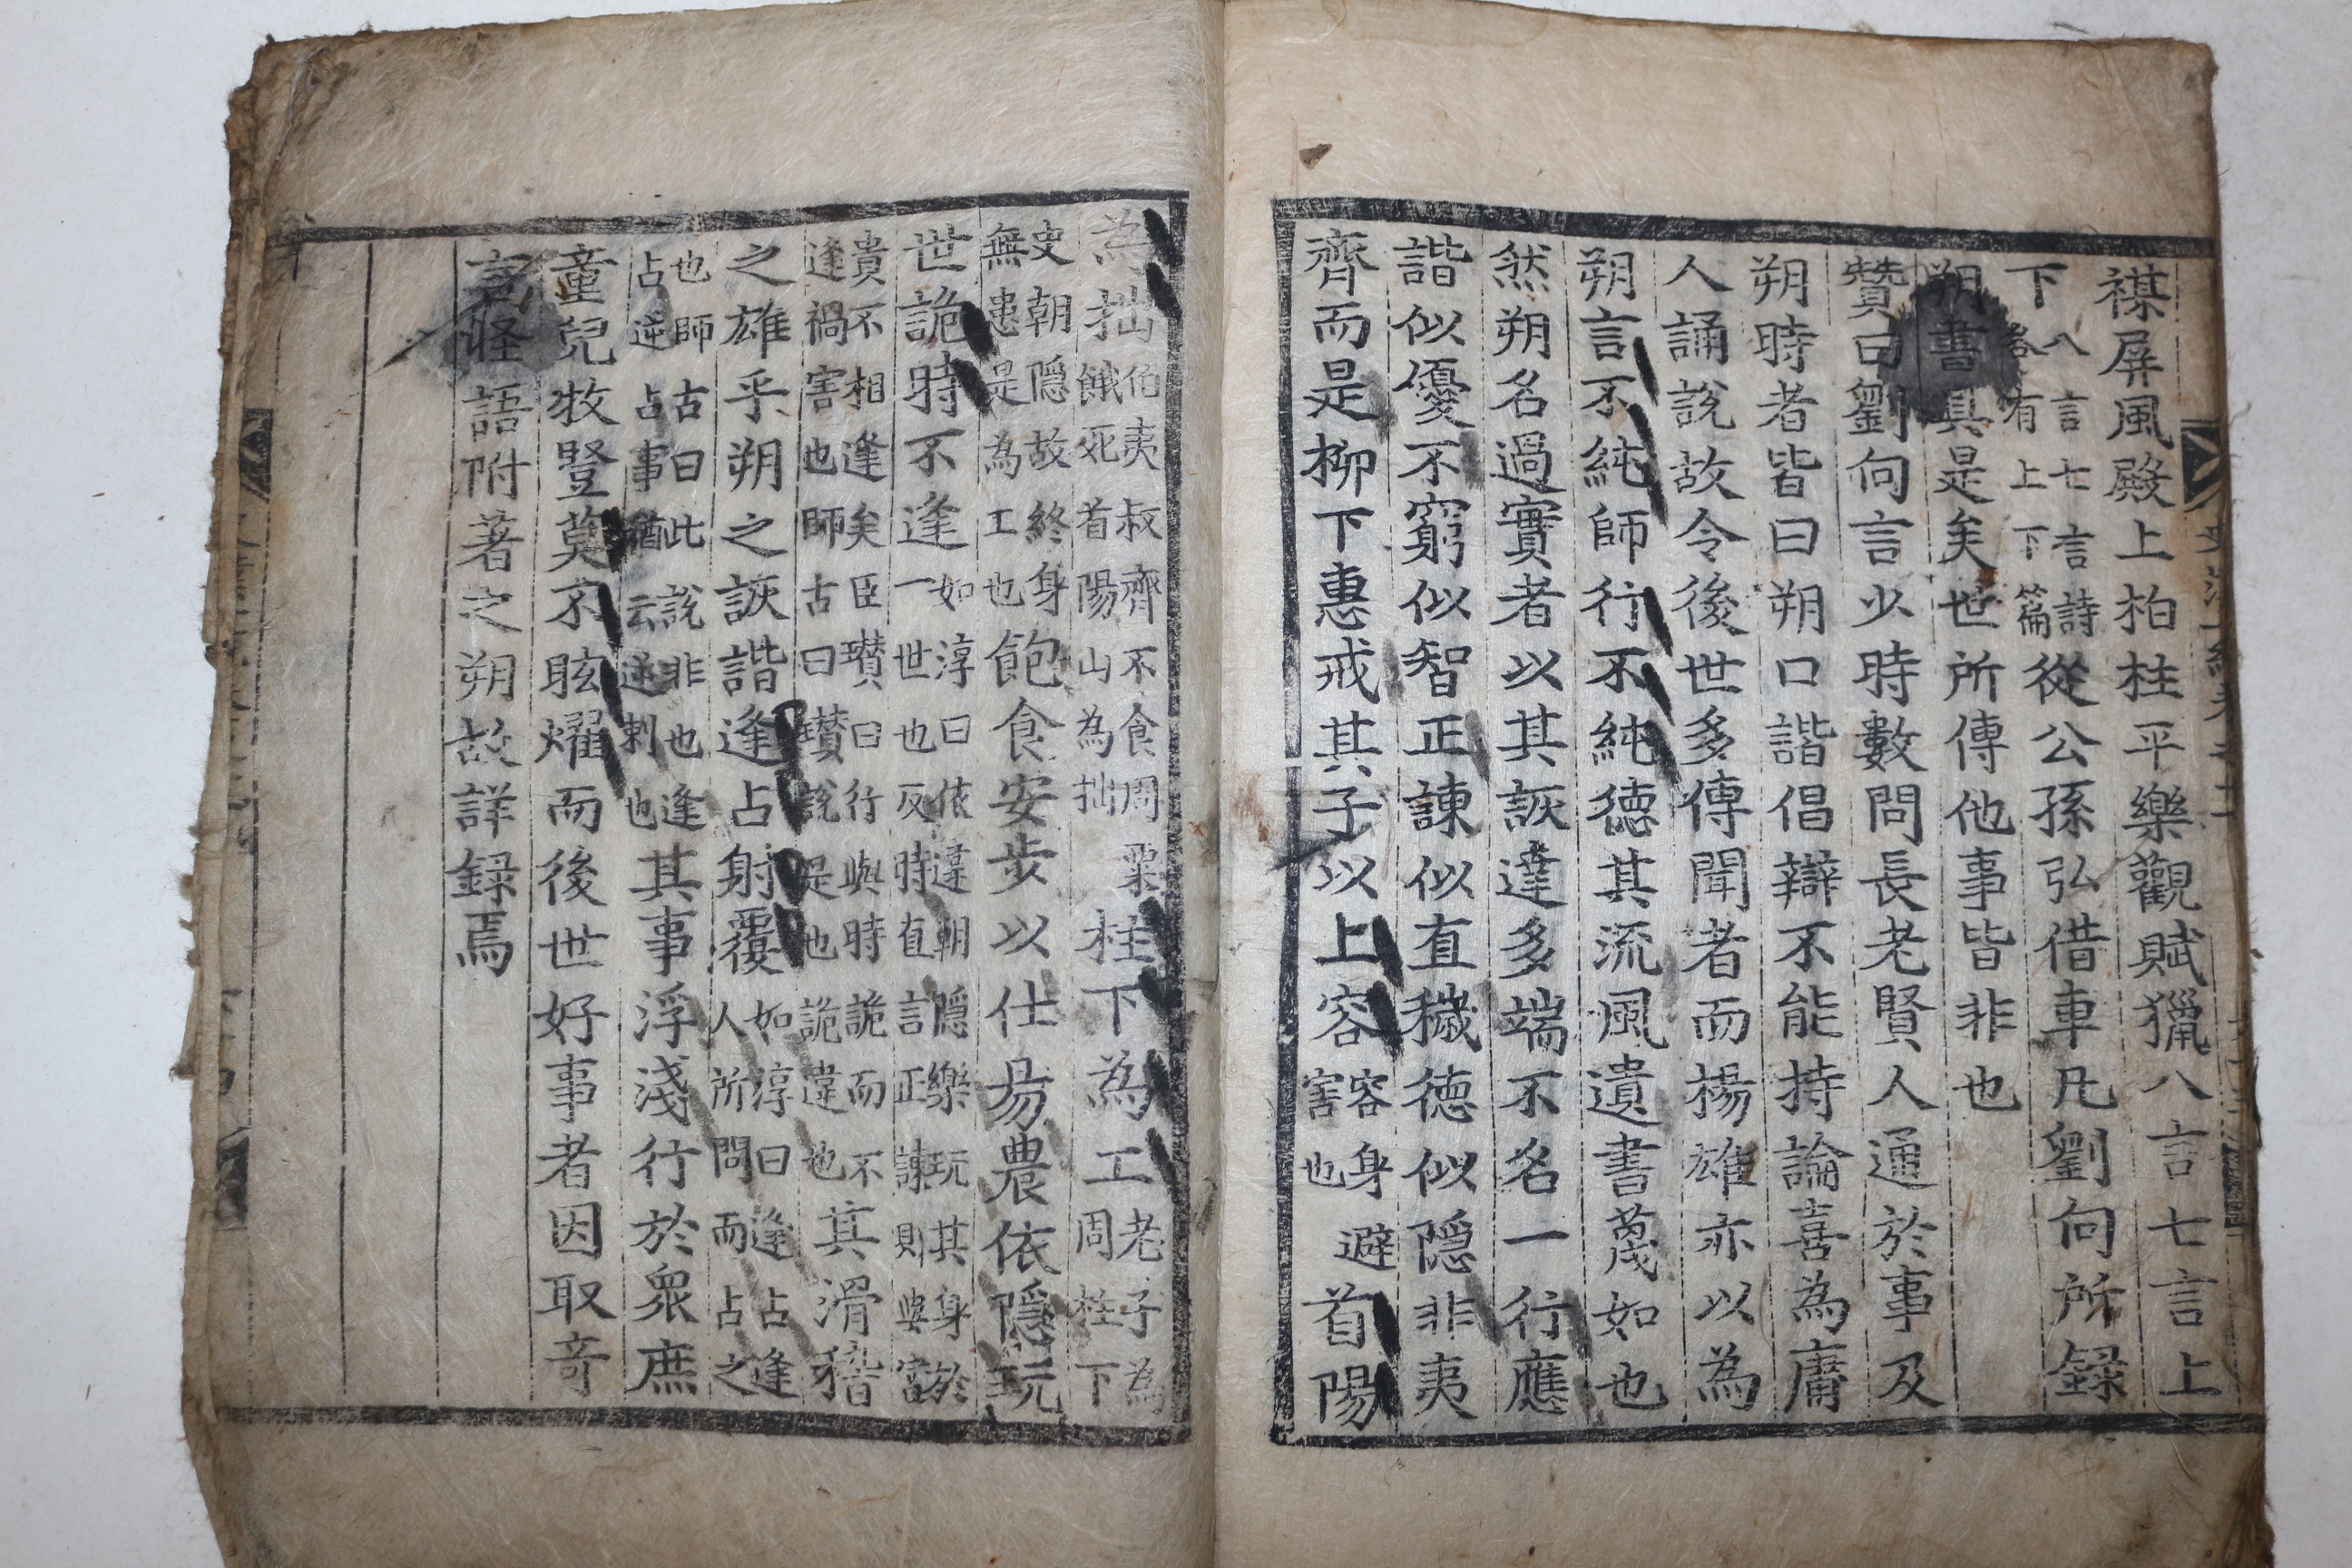 禖屏風殿上柏柱平樂觀賦獵八言七言上
下八言七言詩各有上下篇從公孫弘借車凡劉向所録
朔書具是矣世所傳他事皆非也
贊曰劉向言少時數問長老賢人通於事及
朔時者皆曰朔口諧倡辯不能持論喜為庸
人誦説故令後世多傳聞者而楊雄亦以為
朔言不純師行不純德其流風遺書蔑如也
然朔名過實者以其詼達多端不名一行應
諧似優不窮似智正諫似直穢德似隱非夷
齊而是柳下惠戒其子以上容容身避害也首陽
為拙伯夷叔齊不食周粟餓死首陽山為拙柱下為工老子為周柱下
史朝隱故終身無患是為工也飽食安步以仕昜農依隱玩
世詭時不逢如淳曰依違朝隱樂玩其身於一世也反時直言正諫則與富
貴不相逢矣臣瓚曰行與時詭而不逢禍害也師古曰瓚説是也詭違也其滑稽
之雄乎朔之詼諧逢占射覆如淳曰逢占逢人所問而占之
也師古曰此説非也逢占逆占事猶云逆刺也其事浮淺行於衆庶
童兒牧豎莫不眩燿而後世好事者因取竒
言怪語附著之朔故詳録焉